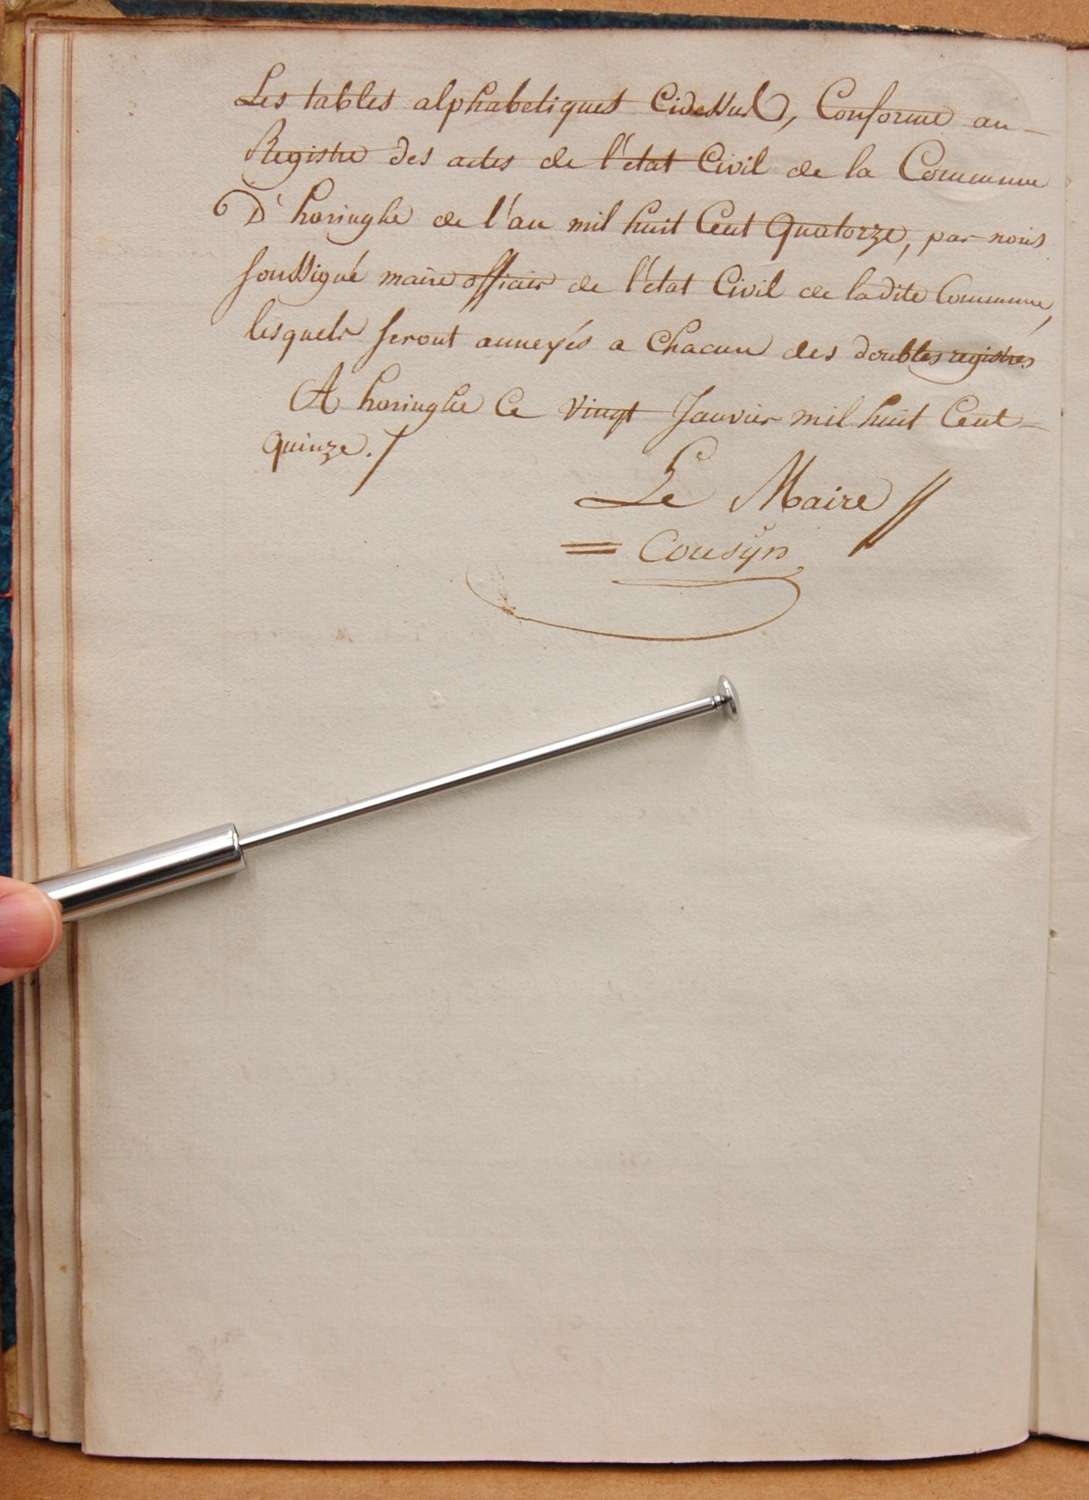 Les tables alphabetiques Cidessus, Conforme au
Registre des actes de l'état Civil de la Commune
D'horinghe de l'an mil huit Cent Quatorze, par nous
soussigné maire officier de l'état Civil de ladite Commune,
lesquels seront annexés a Chacun des doubles registres
A horinghe Ce vingt Janvier mil huit Cent
quinze./
Le Maire
= Cousÿn